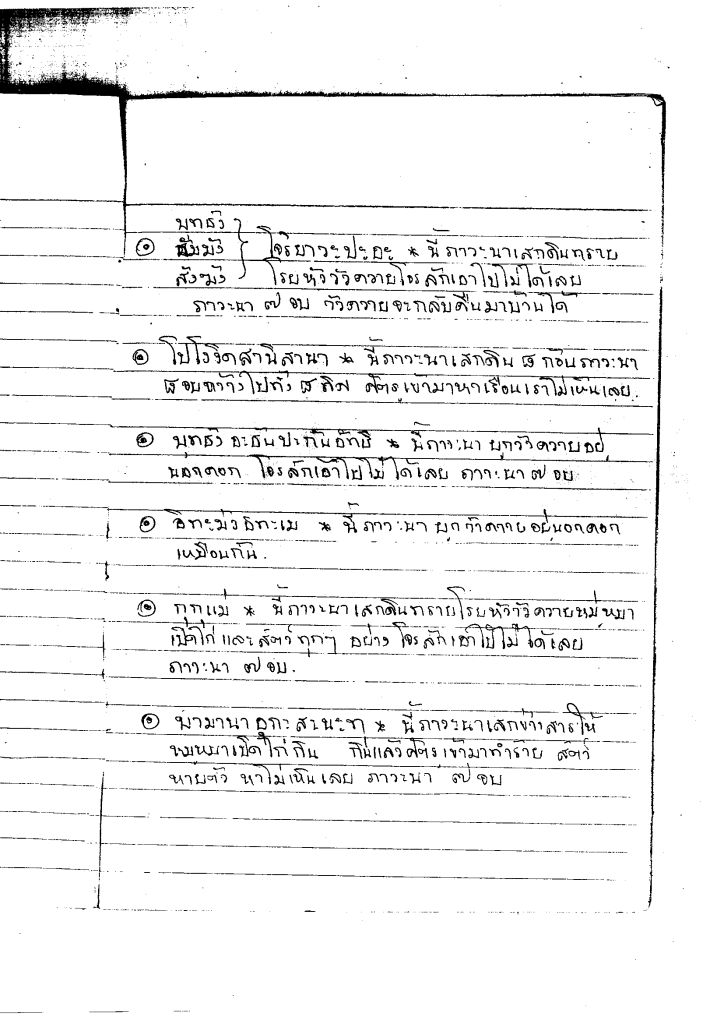 พุทธัง
๏ ธัมมัง } โจริยาวะปะอะ * นี้ ภาวะนาเสกดินทราย
สังฆัง โรยหัววัวควายโจรลักเอาไปไม่ได้เลย
ภาวะนา ๗ จบ วัวควายจะกลับคืนมาบ้านได้
๏ โปโรจิตสานิสานา * นี้ภาวะนาเสกดิน ๘ ก้อนภาวะนา
๘ จบขว้างไปทั้ง ๘ ทิศ ศัตรูเข้ามาหาเรือนเราไม่เห็นเลย.
๏ พุทธัง อะธันปะกัน * นี้ภาวะนา ผูกวัวควายอยู่
นอกคอก โจรลักเอาไปไม่ได้เลย ภาวะนา ๗ จบ
๏ อิทะมังอิทะเม * นี้ภาวะนา ผูกวัวควายอยู่นอกคอก
เหมือนกัน.
๏ กุกุแม่ * นี้ภาวะนาเสกดินทรายโรยหัววัวควายหมูหมา
เป็ดไก่ และสัตว์ทุกๆ อย่าง โจรลักเอาไปไม่ได้เลย
ภาวะนา ๗ จบ.
๏ นามานา อุกะสะนะทุ * นี้ภาวะนาเสกข้าวสารให้
หมูหมาเป็ดไก่กิน กินแล้วศัตรูเข้ามาทำร้าย สัตว์
หายตัว หาไม่เห็นเลย ภาวะนา ๗ จบ